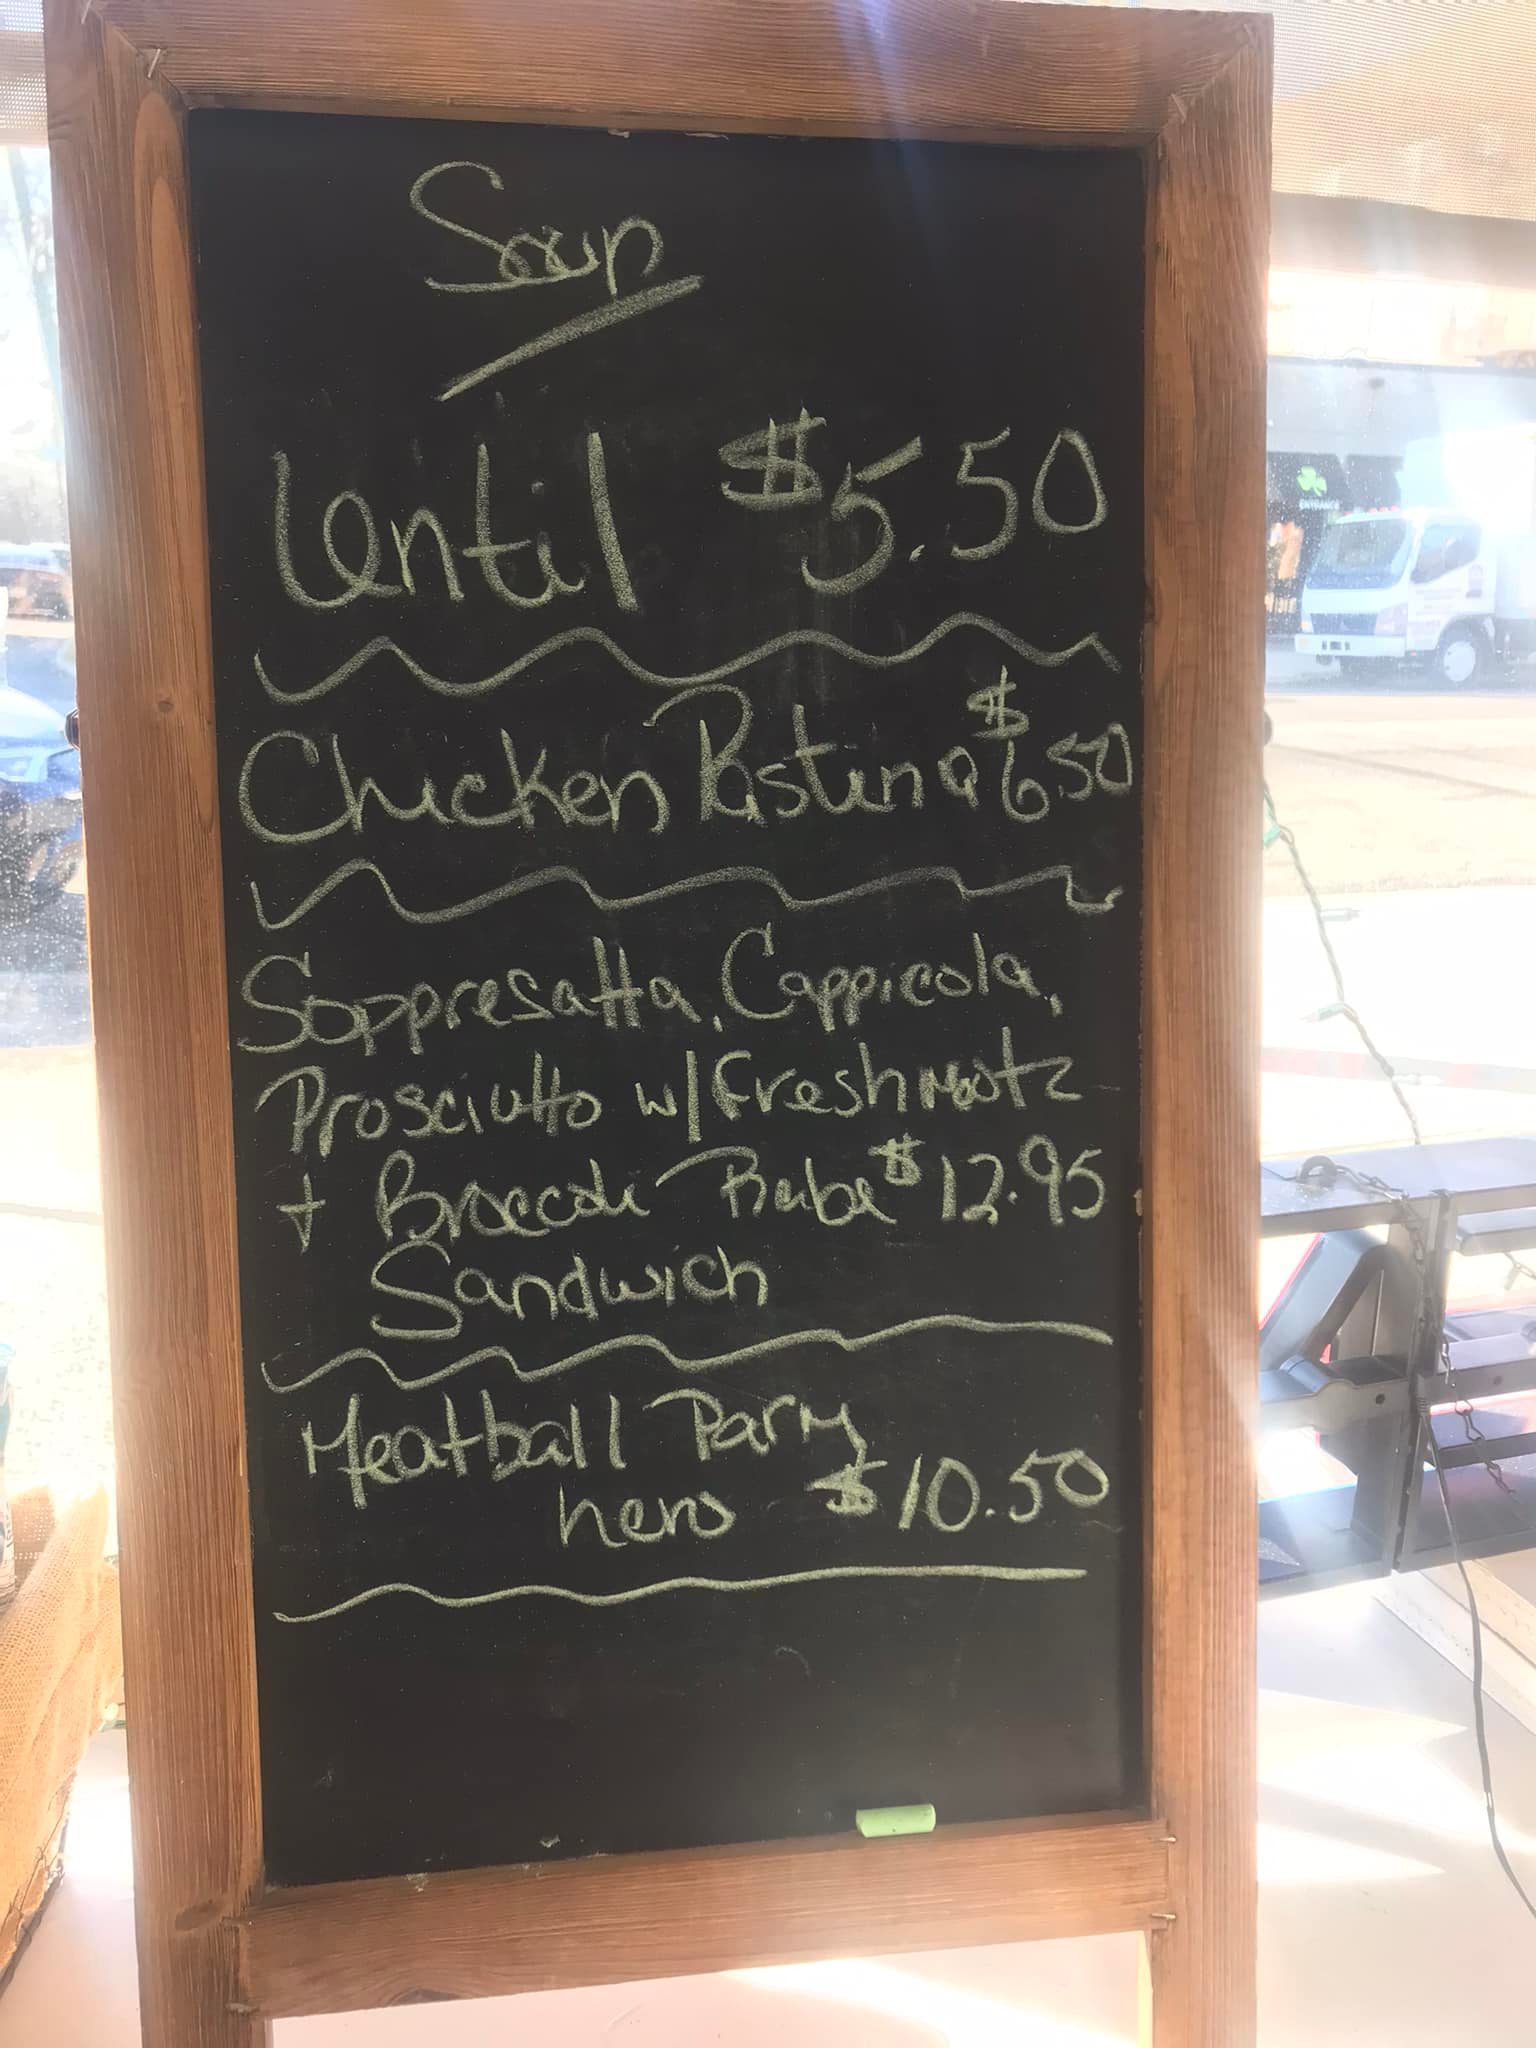 Soup
Lentil $5.50
Chicken Pastina $6.50
Soppresatta, Cappicola,
Prosciutto w/Fresh Mootz
+ Broccoli Rabe $12.95
Sandwich
Meatball Parm
hero $10.50
ENTRANCE